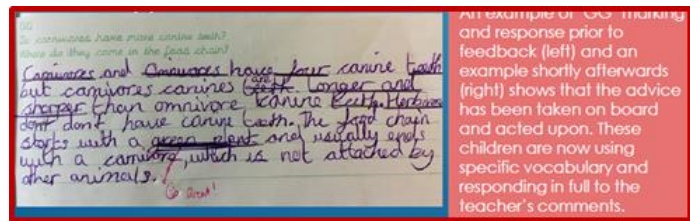 GG
Do carnivores have more canine teeth?
Where do they come in the food chain?
Carnivores and Omnivores have four canine teeth
but carnivores canines are longer and
sharper than omnivore canine teeth. Herbivores
dont dont have canine teeth. The food chain
starts with a green plant and usually ends
with a carnivore, which is not attached by
other animals.
Great!
An example of 'GG' marking
and response prior to
feedback (left) and an
example shortly afterwards
(right) shows that the advice
has been taken on board
and acted upon. These
children are now using
specific vocabulary and
responding in full to the
teacher's comments.